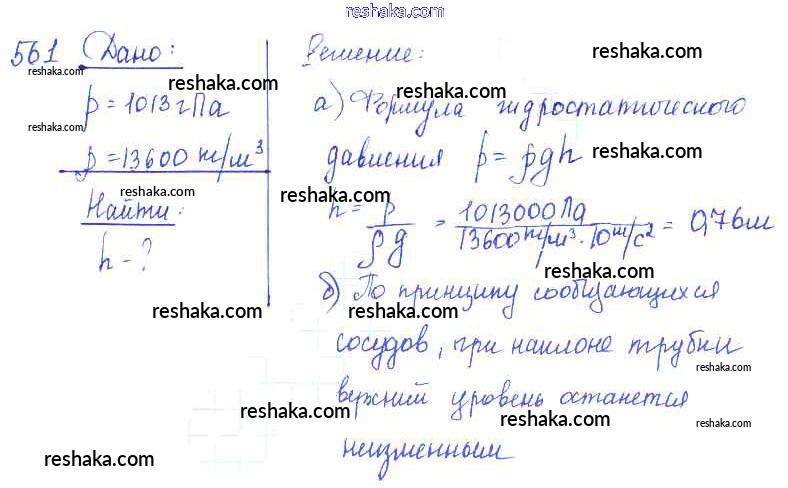 reshaka.com
561 Дано:
reshaka.com
p = 1013 гПа
reshaka.com
ρ = 13600 кг/м³
reshaka.com
Найти:
h - ?
Решение:
reshaka.com
reshaka.com
reshaka.com
а) Формула гидростатического
давления p = ρgh
reshaka.com
reshaka.com
h = p/ρg = 1013000 Па / 13600 кг/м³ · 10 м/с² = 0,76 м
reshaka.com
reshaka.com
б) По принципу сообщающихся
reshaka.com
reshaka.com
сосудов, при наклоне трубки
reshaka.com
верхний уровень останется
reshaka.com
reshaka.com
неизменным
reshaka.com
reshaka.com